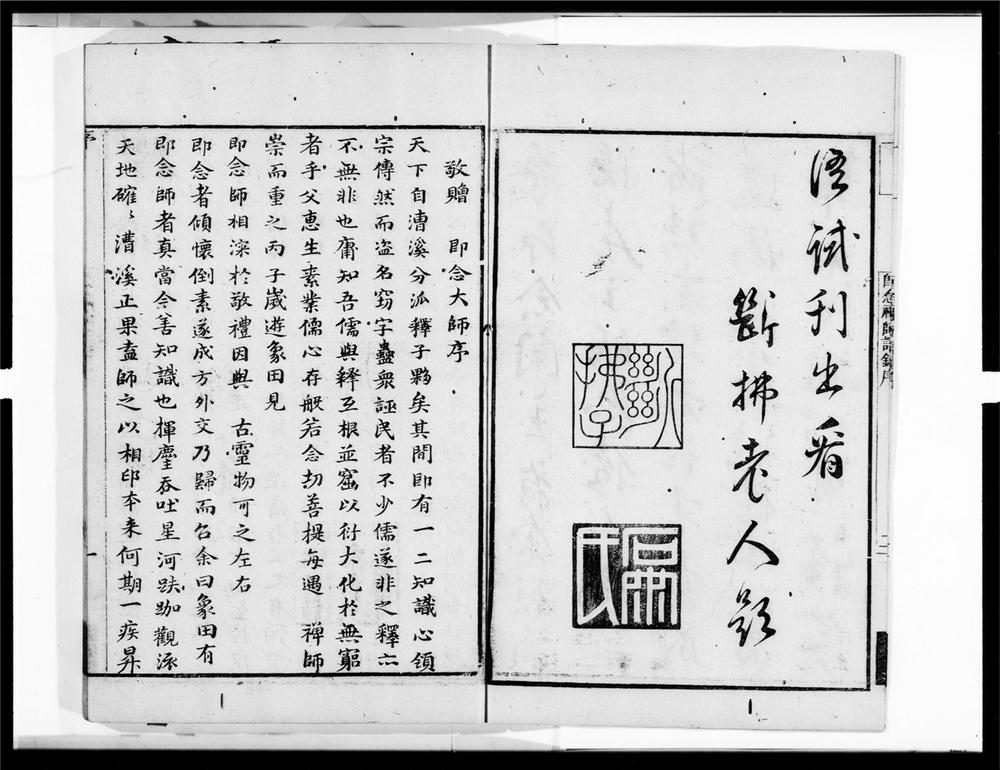 試利出看
斷拂老人題
即念禪師語錄序
二
敬贈 即念大師序
天下自漕溪分派釋子夥矣其間即有一二知識心領
宗傳然而盗名竊字蠱衆誣民者不少儒遂非之釋亦
不無非也庸知吾儒與釋互根並窟以衍大化於無窮
者乎父惠生素業儒心存般若念切菩提每遇 禪師
崇而重之丙子歲遊象田見
即念師相深於敬禮因與 古靈物可之左右
即念者傾懷倒素遂成方外交乃歸而召余曰象田有
即念師者真當今善知識也揮麈吞吐星河趺跏觀派
天地確〻漕溪正果盍師之以相印本来何期一疾昇
序
一